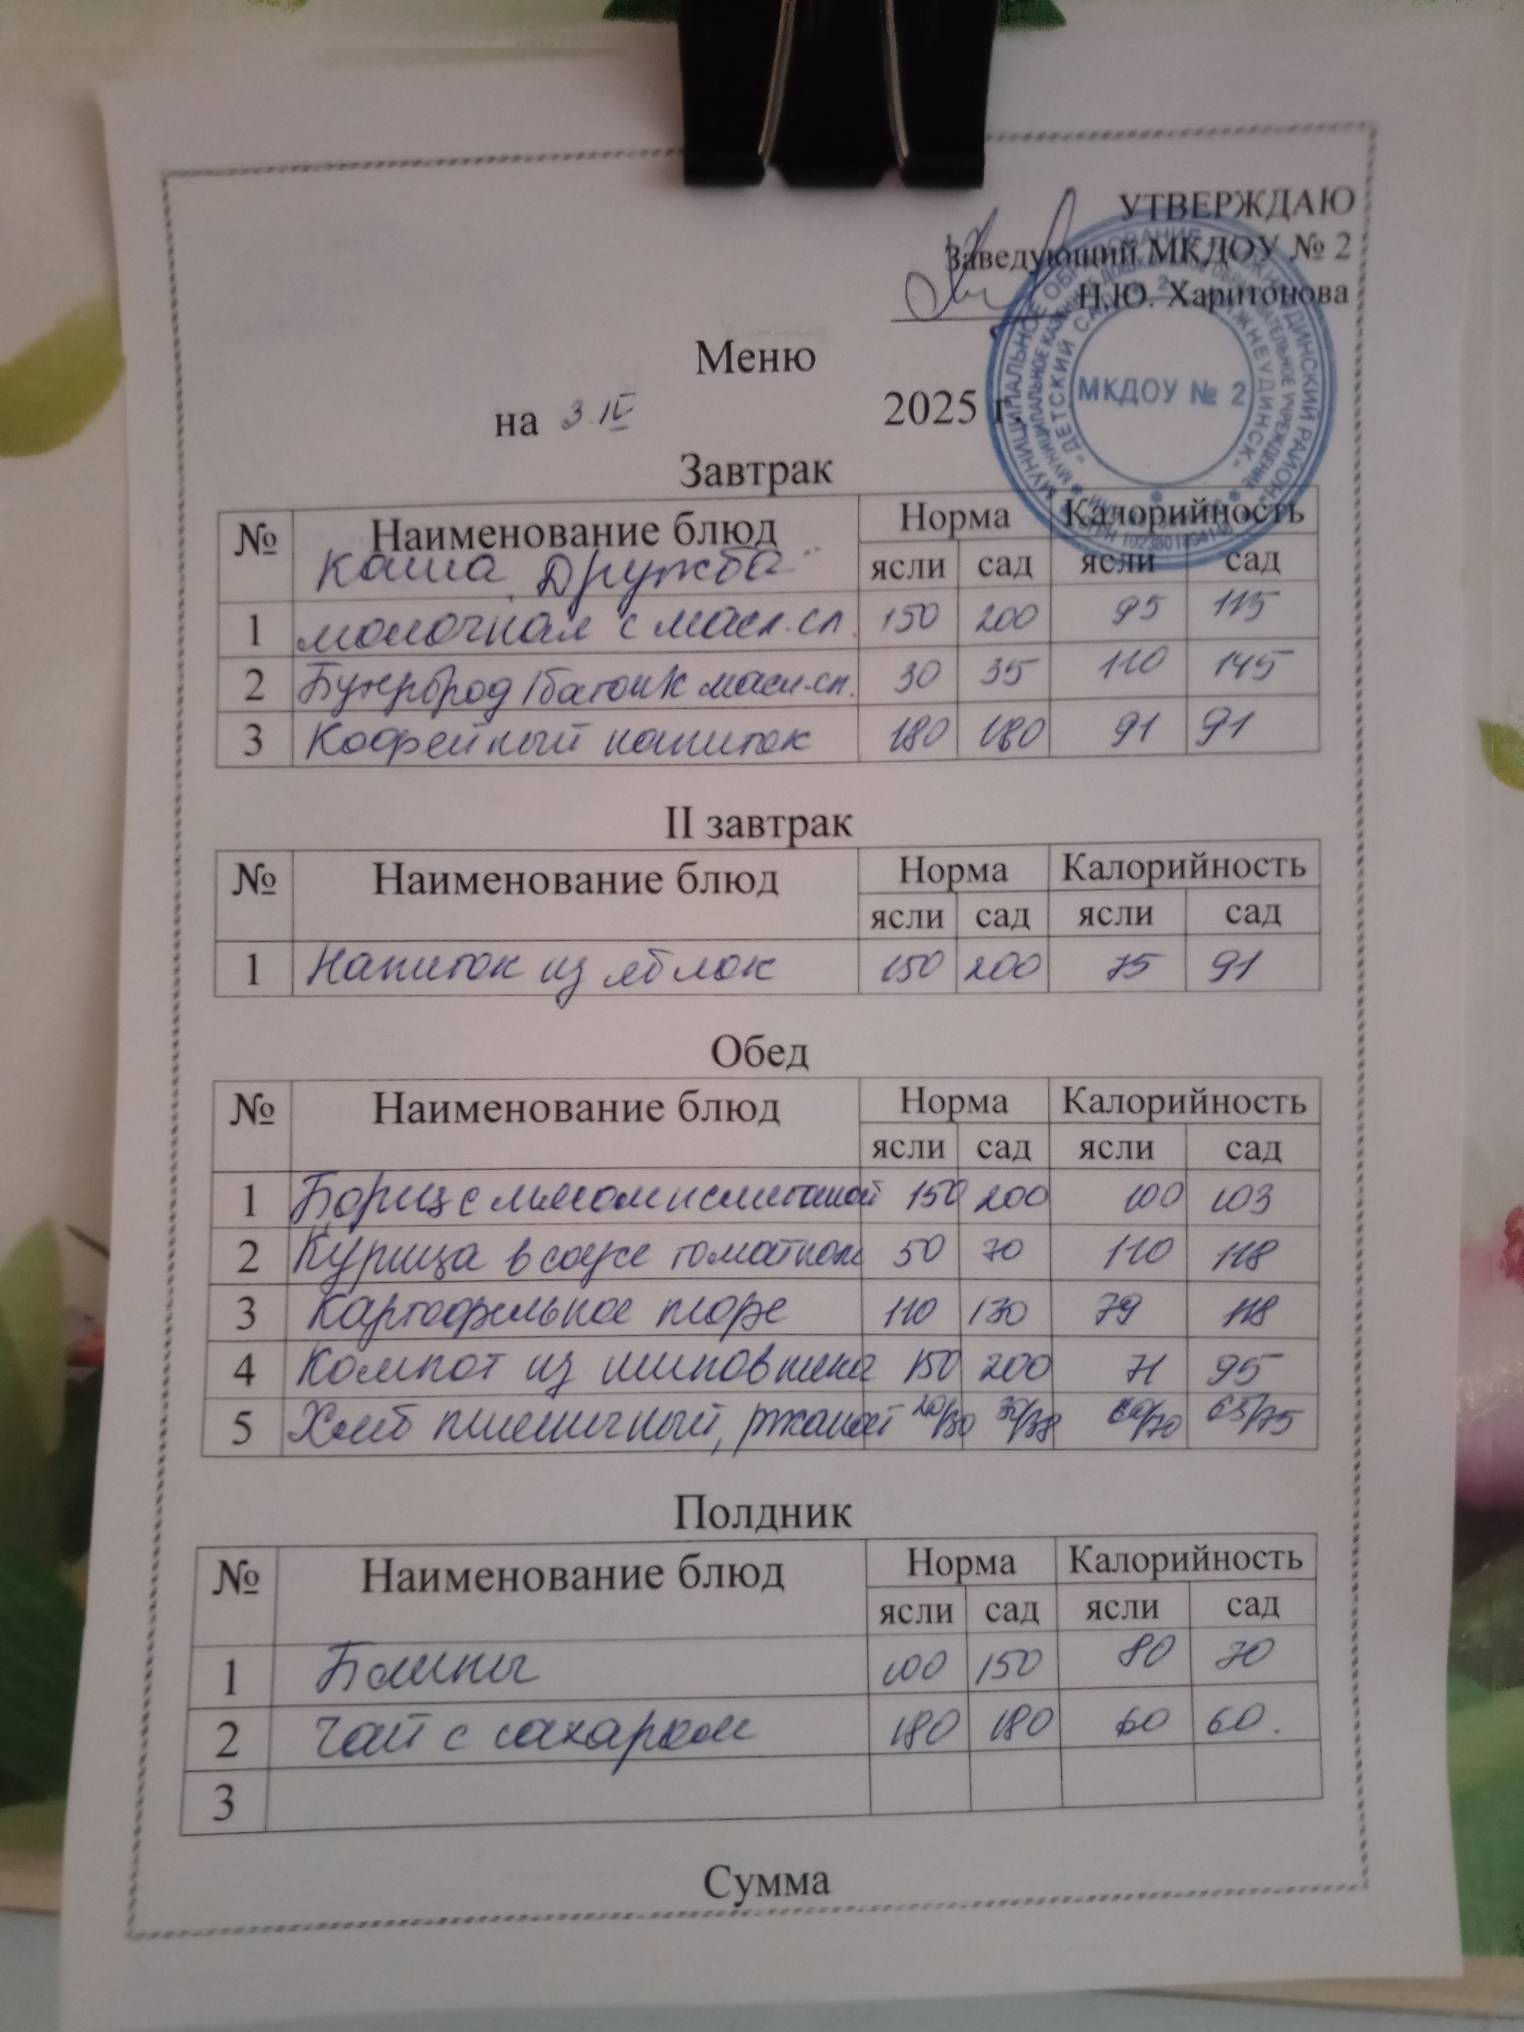 УТВЕРЖДАЮ
Заведующий МКДОУ № 2
Н.Ю. Харитонова
МКДОУ № 2
Меню
на 3.IV 2025 г.
Завтрак
№ Наименование блюд Норма Калорийность
ясли сад ясли сад
Каша "Дружба"
1 молочная с масл.сл. 150 200 95 115
2 Бутерброд /батон/с масл.сл. 30 35 110 145
3 Кофейный напиток 180 180 91 91
II завтрак
№ Наименование блюд Норма Калорийность
ясли сад ясли сад
1 Напиток из яблок 150 200 75 91
Обед
№ Наименование блюд Норма Калорийность
ясли сад ясли сад
1 Борщ с мясом и сметаной 150 200 100 103
2 Курица в соусе томатном 50 70 110 118
3 Картофельное пюре 110 130 79 118
4 Компот из шиповника 150 200 71 95
5 Хлеб пшеничный, ржаной 20/30 30/38 60/70 65/75
Полдник
№ Наименование блюд Норма Калорийность
ясли сад ясли сад
1 Блины 100 150 80 70
2 Чай с сахаром 180 180 60 60.
3
Сумма